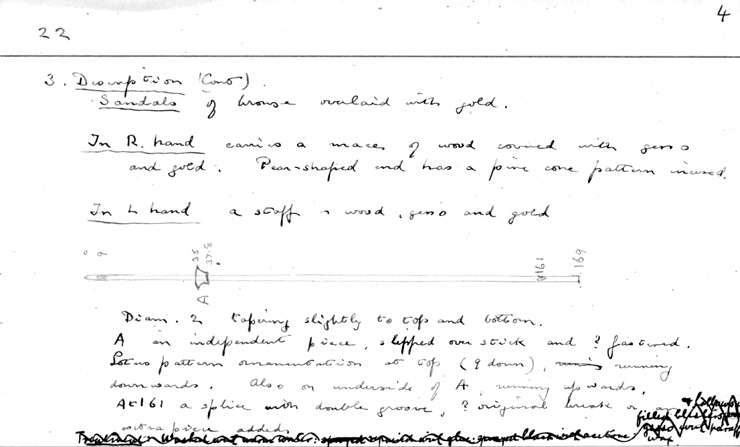 4
22
3. Description (Cont).
Sandals of bronze overlaid with gold.
In R. hand carries a mace, of wood covered with gesso
and gold. Pear-shaped and has a pine cone pattern incused.
In L hand a staff of wood, gesso and gold
0 9 35 37.8 A161 169
A
Diam. 2 tapering slightly to top and bottom.
A an independent piece, slipped over stick and ? fastened.
Lotus pattern ornamentation at top (9 down), running
downwards. Also on underside of A, running upwards.
At 161 a splice with double groove, ? original break or
extra piece added.
Washed out warm water